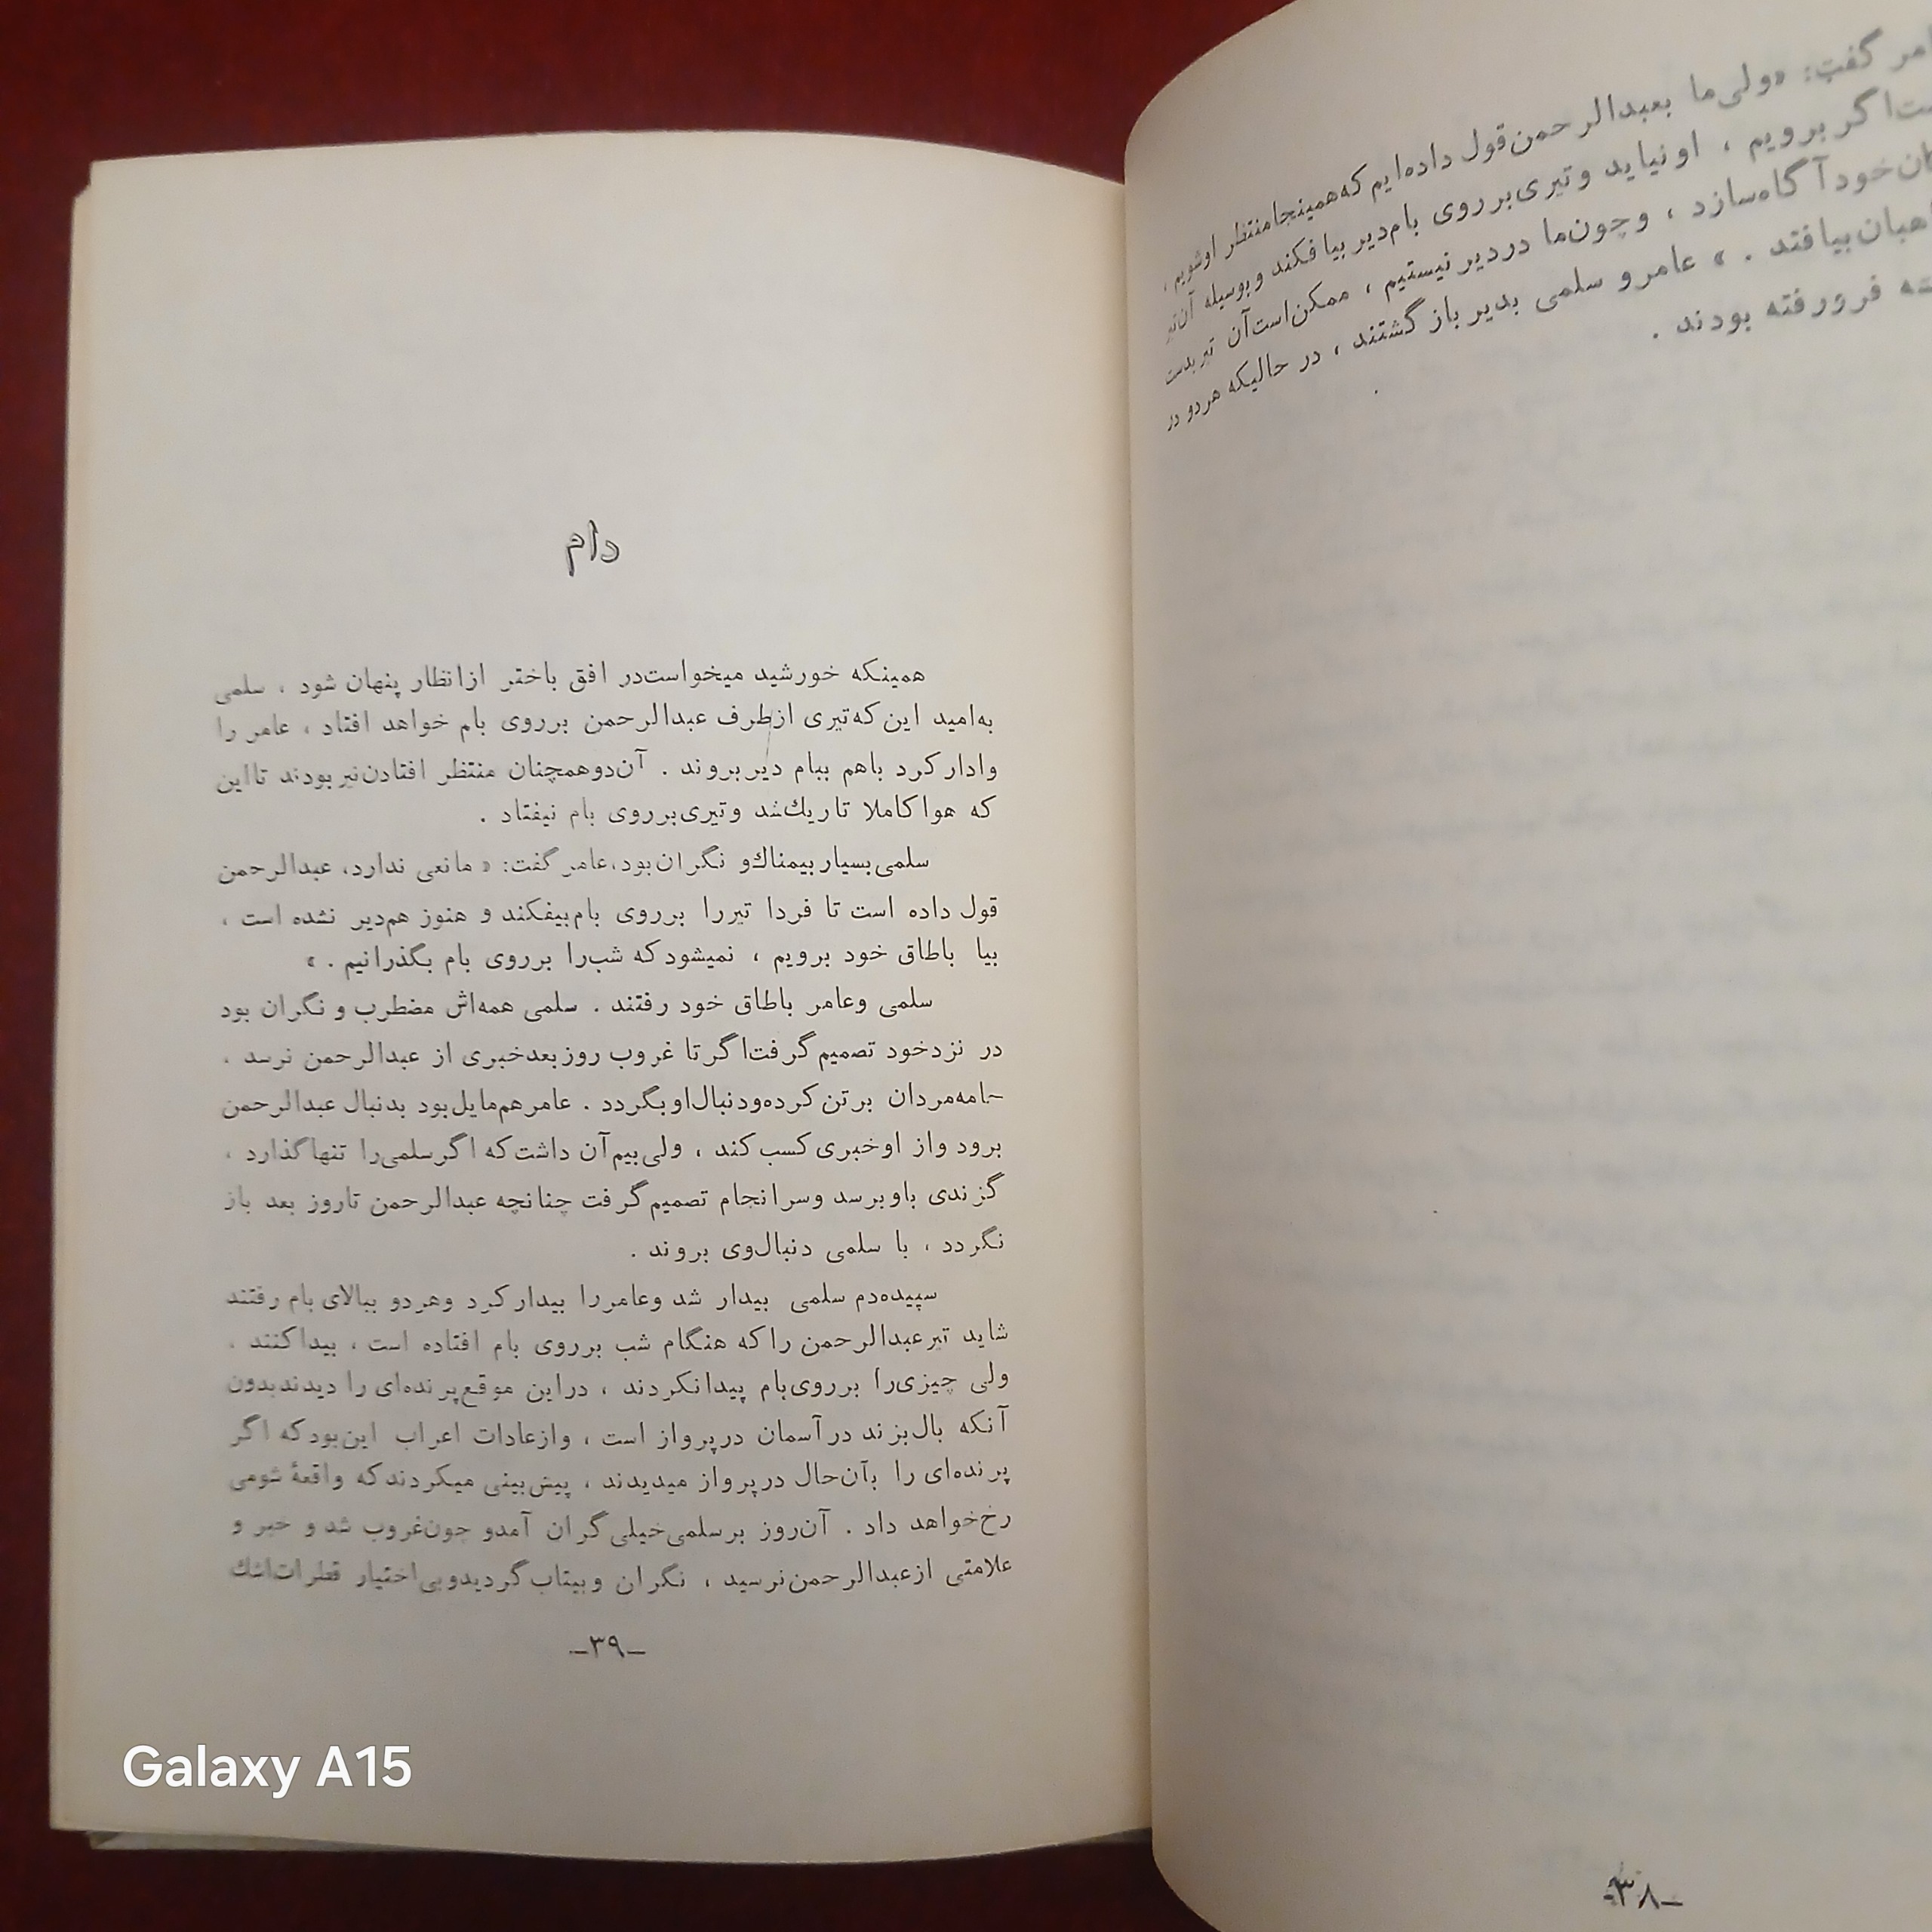 گفت: «ولی‌ما بعبدالرحمن قول داده‌ایم که همینجا منتظر اوشویم ،
اگر برویم ، او نیاید و تیری بر روی بام دیر بیافکند و بوسیله آن تیر
خود آگاه سازد ، و چون ما در دیر نیستیم ، ممکن است آن تیر بدست
بیافتد . » عامر و سلمی بدیر باز گشتند ، در حالیکه هر دو در
فرو رفته بودند .
-۳۸-
دام
همینکه خورشید میخواست در افق باختر از انظار پنهان شود ، سلمی
به امید این که تیری از طرف عبدالرحمن بر روی بام خواهد افتاد ، عامر را
وادار کرد باهم ببام دیر بروند . آن دو همچنان منتظر افتادن تیر بودند تا این
که هوا کاملا تاریك شد و تیری بر روی بام نیفتاد .
سلمی بسیار بیمناك و نگران بود، عامر گفت: « مانعی ندارد، عبدالرحمن
قول داده است تا فردا تیر را بر روی بام بیفکند و هنوز هم دیر نشده است ،
بیا باطاق خود برویم ، نمیشود که شب را بر روی بام بگذرانیم . »
سلمی و عامر باطاق خود رفتند . سلمی همه‌اش مضطرب و نگران بود
در نزد خود تصمیم گرفت اگر تا غروب روز بعد خبری از عبدالرحمن نرسد ،
جامه مردان بر تن کرده و دنبال او بگردد . عامر هم مایل بود بدنبال عبدالرحمن
برود و از او خبری کسب کند ، ولی بیم آن داشت که اگر سلمی را تنها گذارد ،
گزندی باو برسد و سرانجام تصمیم گرفت چنانچه عبدالرحمن تا روز بعد باز
نگردد ، با سلمی دنبال وی بروند .
سپیده‌دم سلمی بیدار شد و عامر را بیدار کرد و هر دو ببالای بام رفتند
شاید تیر عبدالرحمن را که هنگام شب بر روی بام افتاده است ، بیدا کنند .
ولی چیزی را بر روی بام پیدا نکردند ، در این موقع پرنده‌ای را دیدند بدون
آنکه بال بزند در آسمان در پرواز است ، و از عادات اعراب این بود که اگر
پرنده‌ای را بآن حال در پرواز میدیدند ، پیش بینی میکردند که واقعهٔ شومی
رخ خواهد داد . آن روز بر سلمی خیلی گران آمد و چون غروب شد و خبر و
علامتی از عبدالرحمن نرسید ، نگران و بیتاب گردید و بی اختیار قطرات اشك
-۳۹-
Galaxy A15